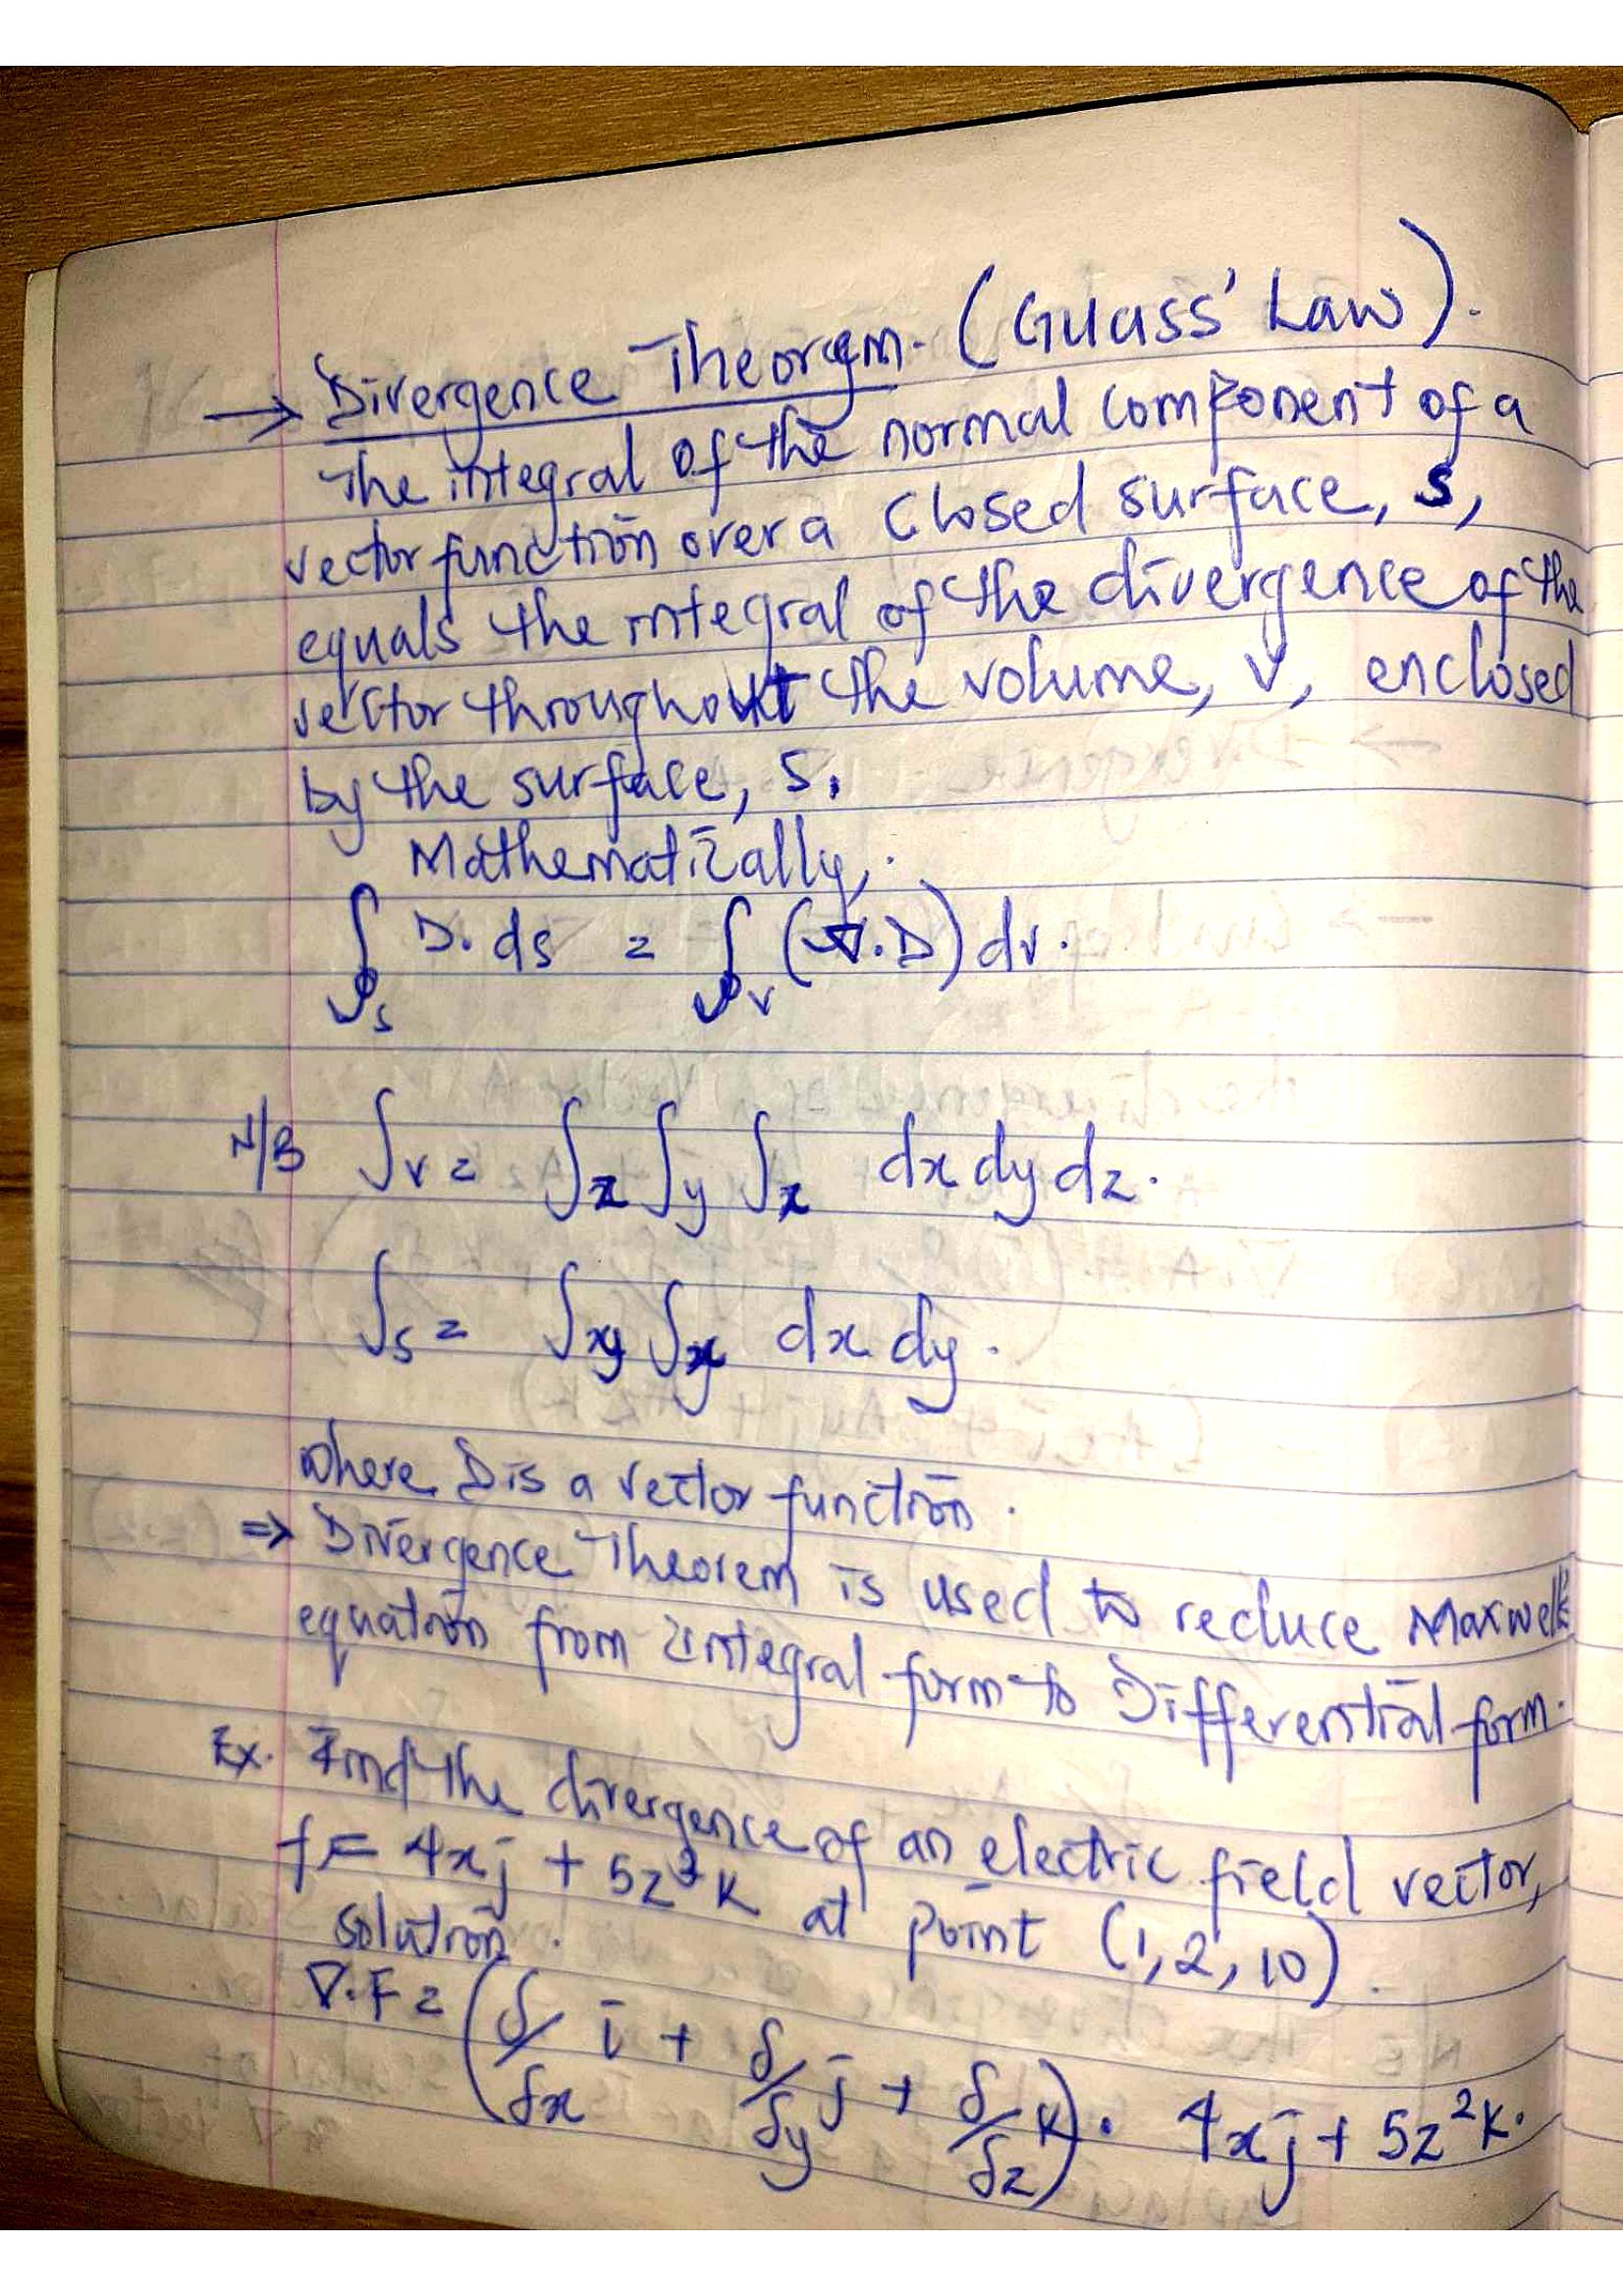 → Divergence Theorem. (Guass' Law).
The integral of the normal component of a
vector function over a closed surface, S,
equals the integral of the divergence of the
vector throughout the volume, V, enclosed
by the surface, S.
Mathematically,
∮s D. ds = ∮v (∇.D) dv.
N/B ∫v = ∫z ∫y ∫x dx dy dz.
∫s = ∫y ∫x dx dy.
where D is a vector function.
⇒ Divergence Theorem is used to reduce Maxwell's
equation from integral form to Differential form.
Ex. Find the divergence of an electric field vector,
f = 4xj + 5z²k at point (1,2,10).
solution.
∇.F = (δ/δx i + δ/δy j + δ/δz k). 4xj + 5z²k.